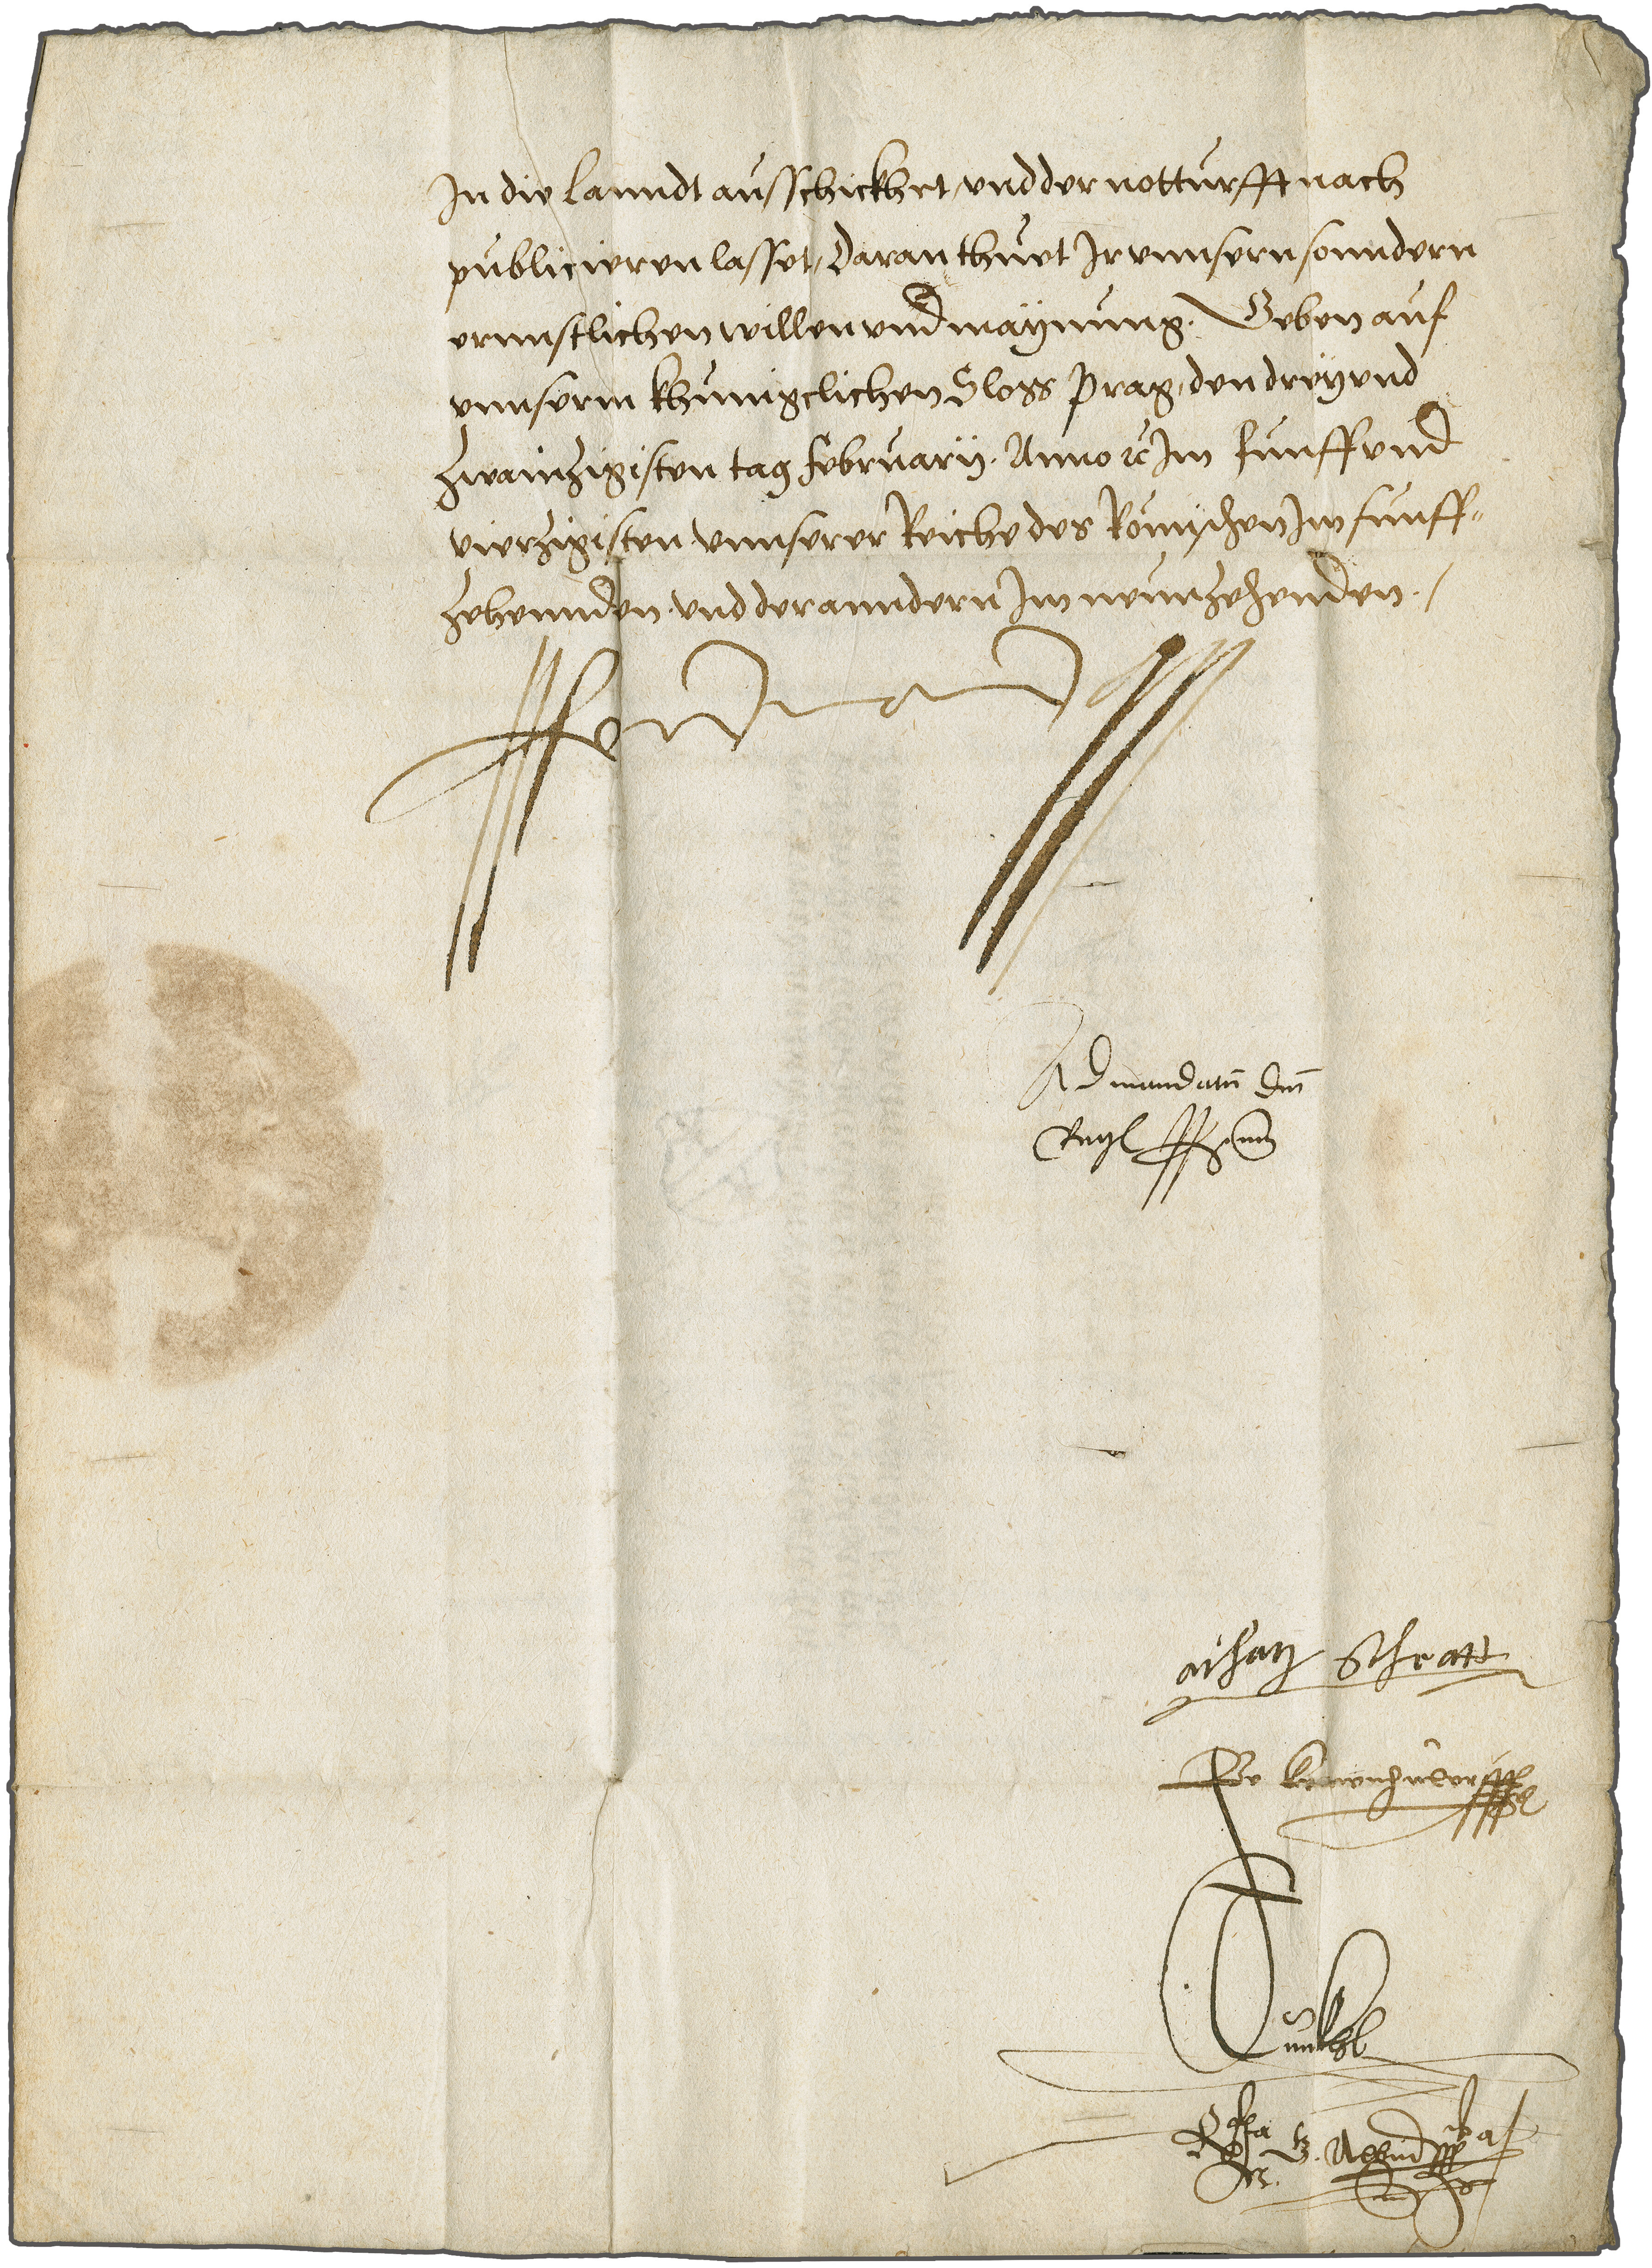 In die Lanndt ausschickhet, vnd der notturfft nach
publicieren lasset, Daran thuet Ir vnnsern sonndern
ernnstlichen willen vnd maÿnung. Geben auf
vnnserm khunigclichen Sloss Prag, den dreÿ vnd
zwainzigisten tag Februarÿ. Anno ꝛc Im funff vnd
vierzigisten vnnserer Reiche des Römischen Im funff-
zehennden. vnd der anndern Im neunzehenden. /
Ferdinand
Ad mandatu̅ dn̅i
Regis
achatz Schratt
Künhl